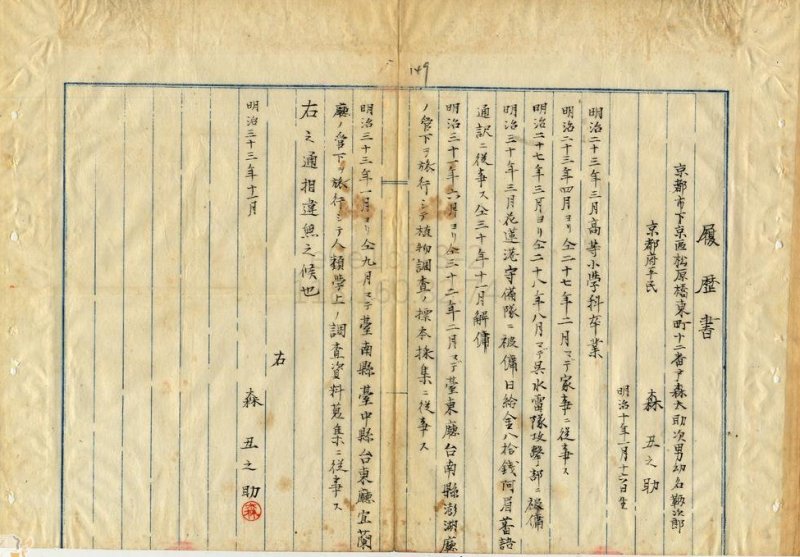 149
履歴書
京都市下京區松原橋東町十二番戸森大助次男幼名鞆次郎
京都府平民
森丑之助
明治十年一月十六日生
明治二十三年三月高等小學科卒業
明治二十三年四月ヨリ仝二十七年二月マデ家事ニ従事ス
明治二十七年三月ヨリ仝二十八年八月マデ呉水雷隊攻撃部ニ被傭
明治三十年三月花蓮港守備隊ニ被傭日給金八拾錢阿眉蕃語
通訳ニ従事ス仝三十年十一月解傭
明治三十一年六月ヨリ仝三十二年二月マデ臺東廳台南縣澎湖廳
ノ管下ヲ旅行シテ植物調査ノ標本採集ニ従事ス
明治三十三年一月ヨリ仝九月マデ臺南縣臺中縣台東廳宜蘭
廳ノ管下ヲ旅行シテ人類學上ノ調査資料蒐集ニ従事ス
右之通相違無之候也
明治三十三年十一月
右
森丑之助
森